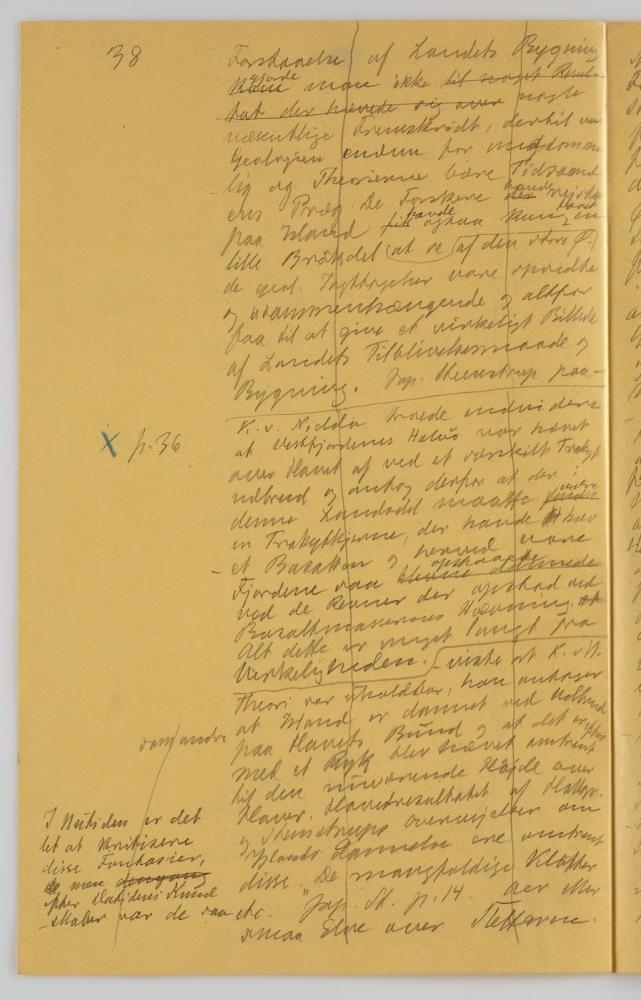 38
Forstaaelse af Landets Bygning
gjorde
Kunde man ikke til noget Resul-
tat der hævede sig over nogle
væsentlige Fremskridt, dertil var
Geologien endnu for ungdomme-
lig og Theorierne bære Tidsaand
ens Præg. De Forskere der rejste
paa Island fik havde ogsaa kun en
lille Brökdel (at se) af den store Ø.
de geol. Iagttagelser vare spredte
og usammenhængende og altfor
faa til at give et virkeligt Billede
af Landets Tilblivelsesmaade og
Bygning. Jap. Steenstrup paa-
K. v. Nidda troede endvidere
at Vestfjordenes Halvö var hævet
over Havet af ved et særskilt Trakyt
udbrud og antog derfor at der i
denne Landsdel maatte findes være
en Trakytkjerne, der havde hæv
et Basalten og herved vare
opstaaede
Fjordene saa dannede
ved de Revner der opstod ved
Basaltmassernes Hævning. at
Alt dette er meget langt fra
Virkeligheden. viste at K. v. N.
Theori var uholdbar, han antager
at Island er dannet ved Udbrud
paa Havets Bund og at det
med et Ryk blev hævet omtrent
til den nuværende Höjde over
Havet. Hovedresultatet af
og Steenstrups overvejelser om
Islands Dannelse ere omtrent
disse. "De mangfoldige Klöfter
etc. Jap. St. p. 14. der eller
smaa Elve over
X p. 36
som andre
I Nutiden er det
let at kritisere
disse Fantasier,
men dengang
efter Datidens Kund
skaber var de saa